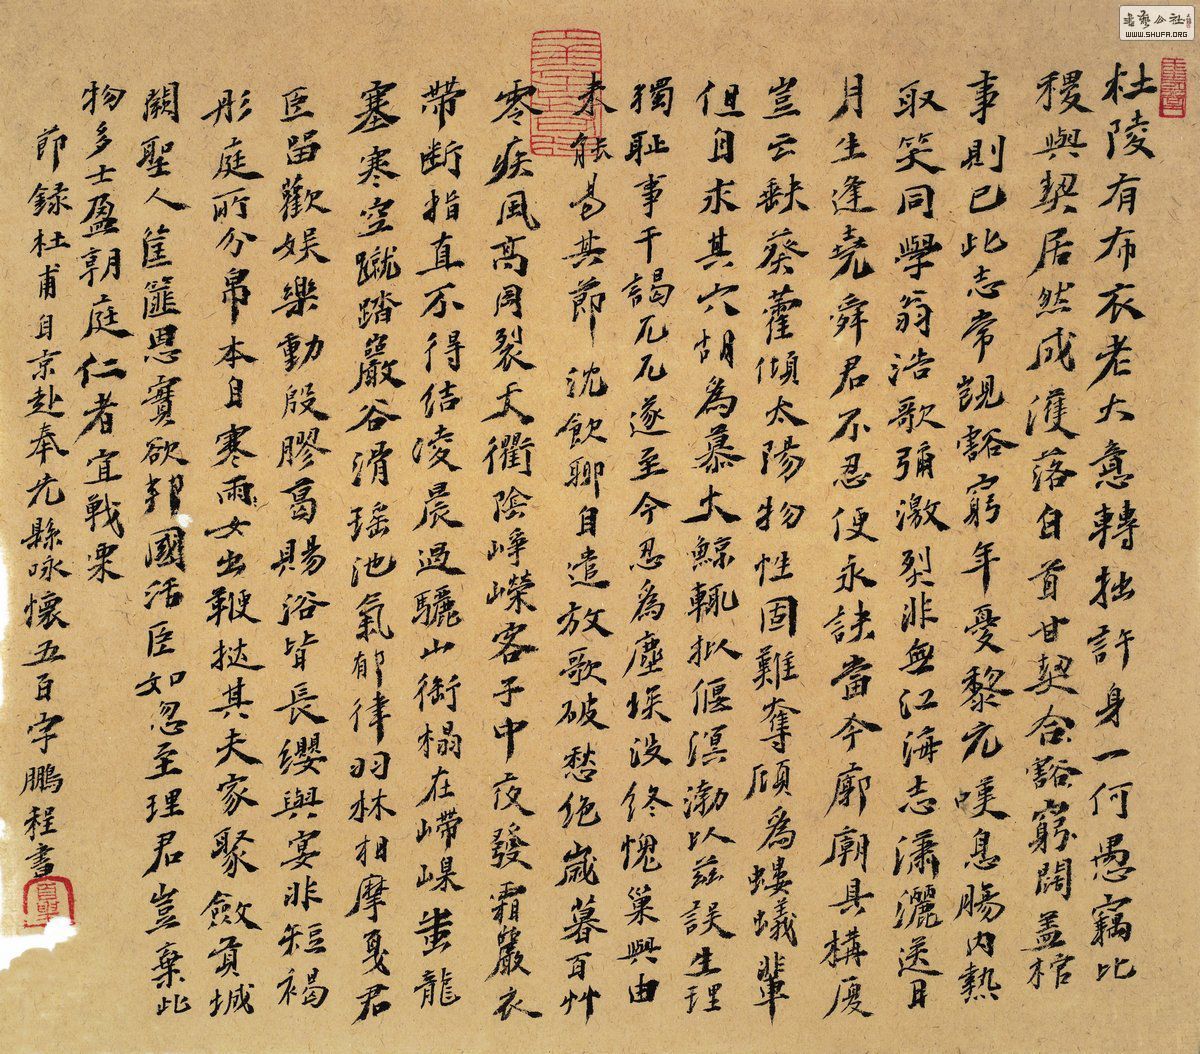 杜陵有布衣老大意轉拙許身一何愚竊比
稷與契居然成濩落白首甘契合豁窮闊蓋棺
事則已此志常覬豁窮年憂黎元嘆息腸內熱
取笑同學翁浩歌彌激烈非無江海志瀟灑送日
月生逢堯舜君不忍便永訣當今廊廟具構廈
豈云缺葵藿傾太陽物性固難奪顧為螻蟻輩
但自求其穴胡為慕大鯨輒擬偃溟渤以茲誤生理
獨恥事干謁兀兀遂至今忍為塵埃沒終愧巢與由
未能易其節沈飲聊自遣放歌破愁絕歲暮百艸
零疾風高岡裂天衢陰崢嶸客子中夜發霜嚴衣
帶斷指直不得結凌晨過驪山御榻在嵽嵲蚩龍
塞寒空蹴踏巖谷滑瑤池氣郁律羽林相摩戛君
臣留歡娛樂動殷膠葛賜浴皆長纓與宴非短褐
彤庭所分帛本自寒雨女出鞭撻其夫家聚斂貢城
闕聖人筐篚恩實欲邦國活臣如忽至理君豈棄此
物多士盈朝庭仁者宜戰栗
節錄杜甫自京赴奉先縣咏懷五百字鵬程書
書藝公社
WWW.SHUFA.ORG